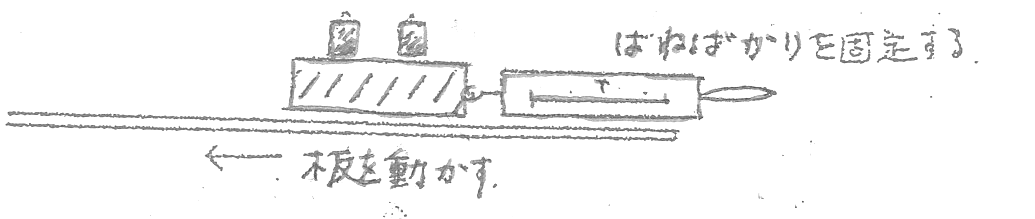 ばねばかりを固定する.
板を動かす.